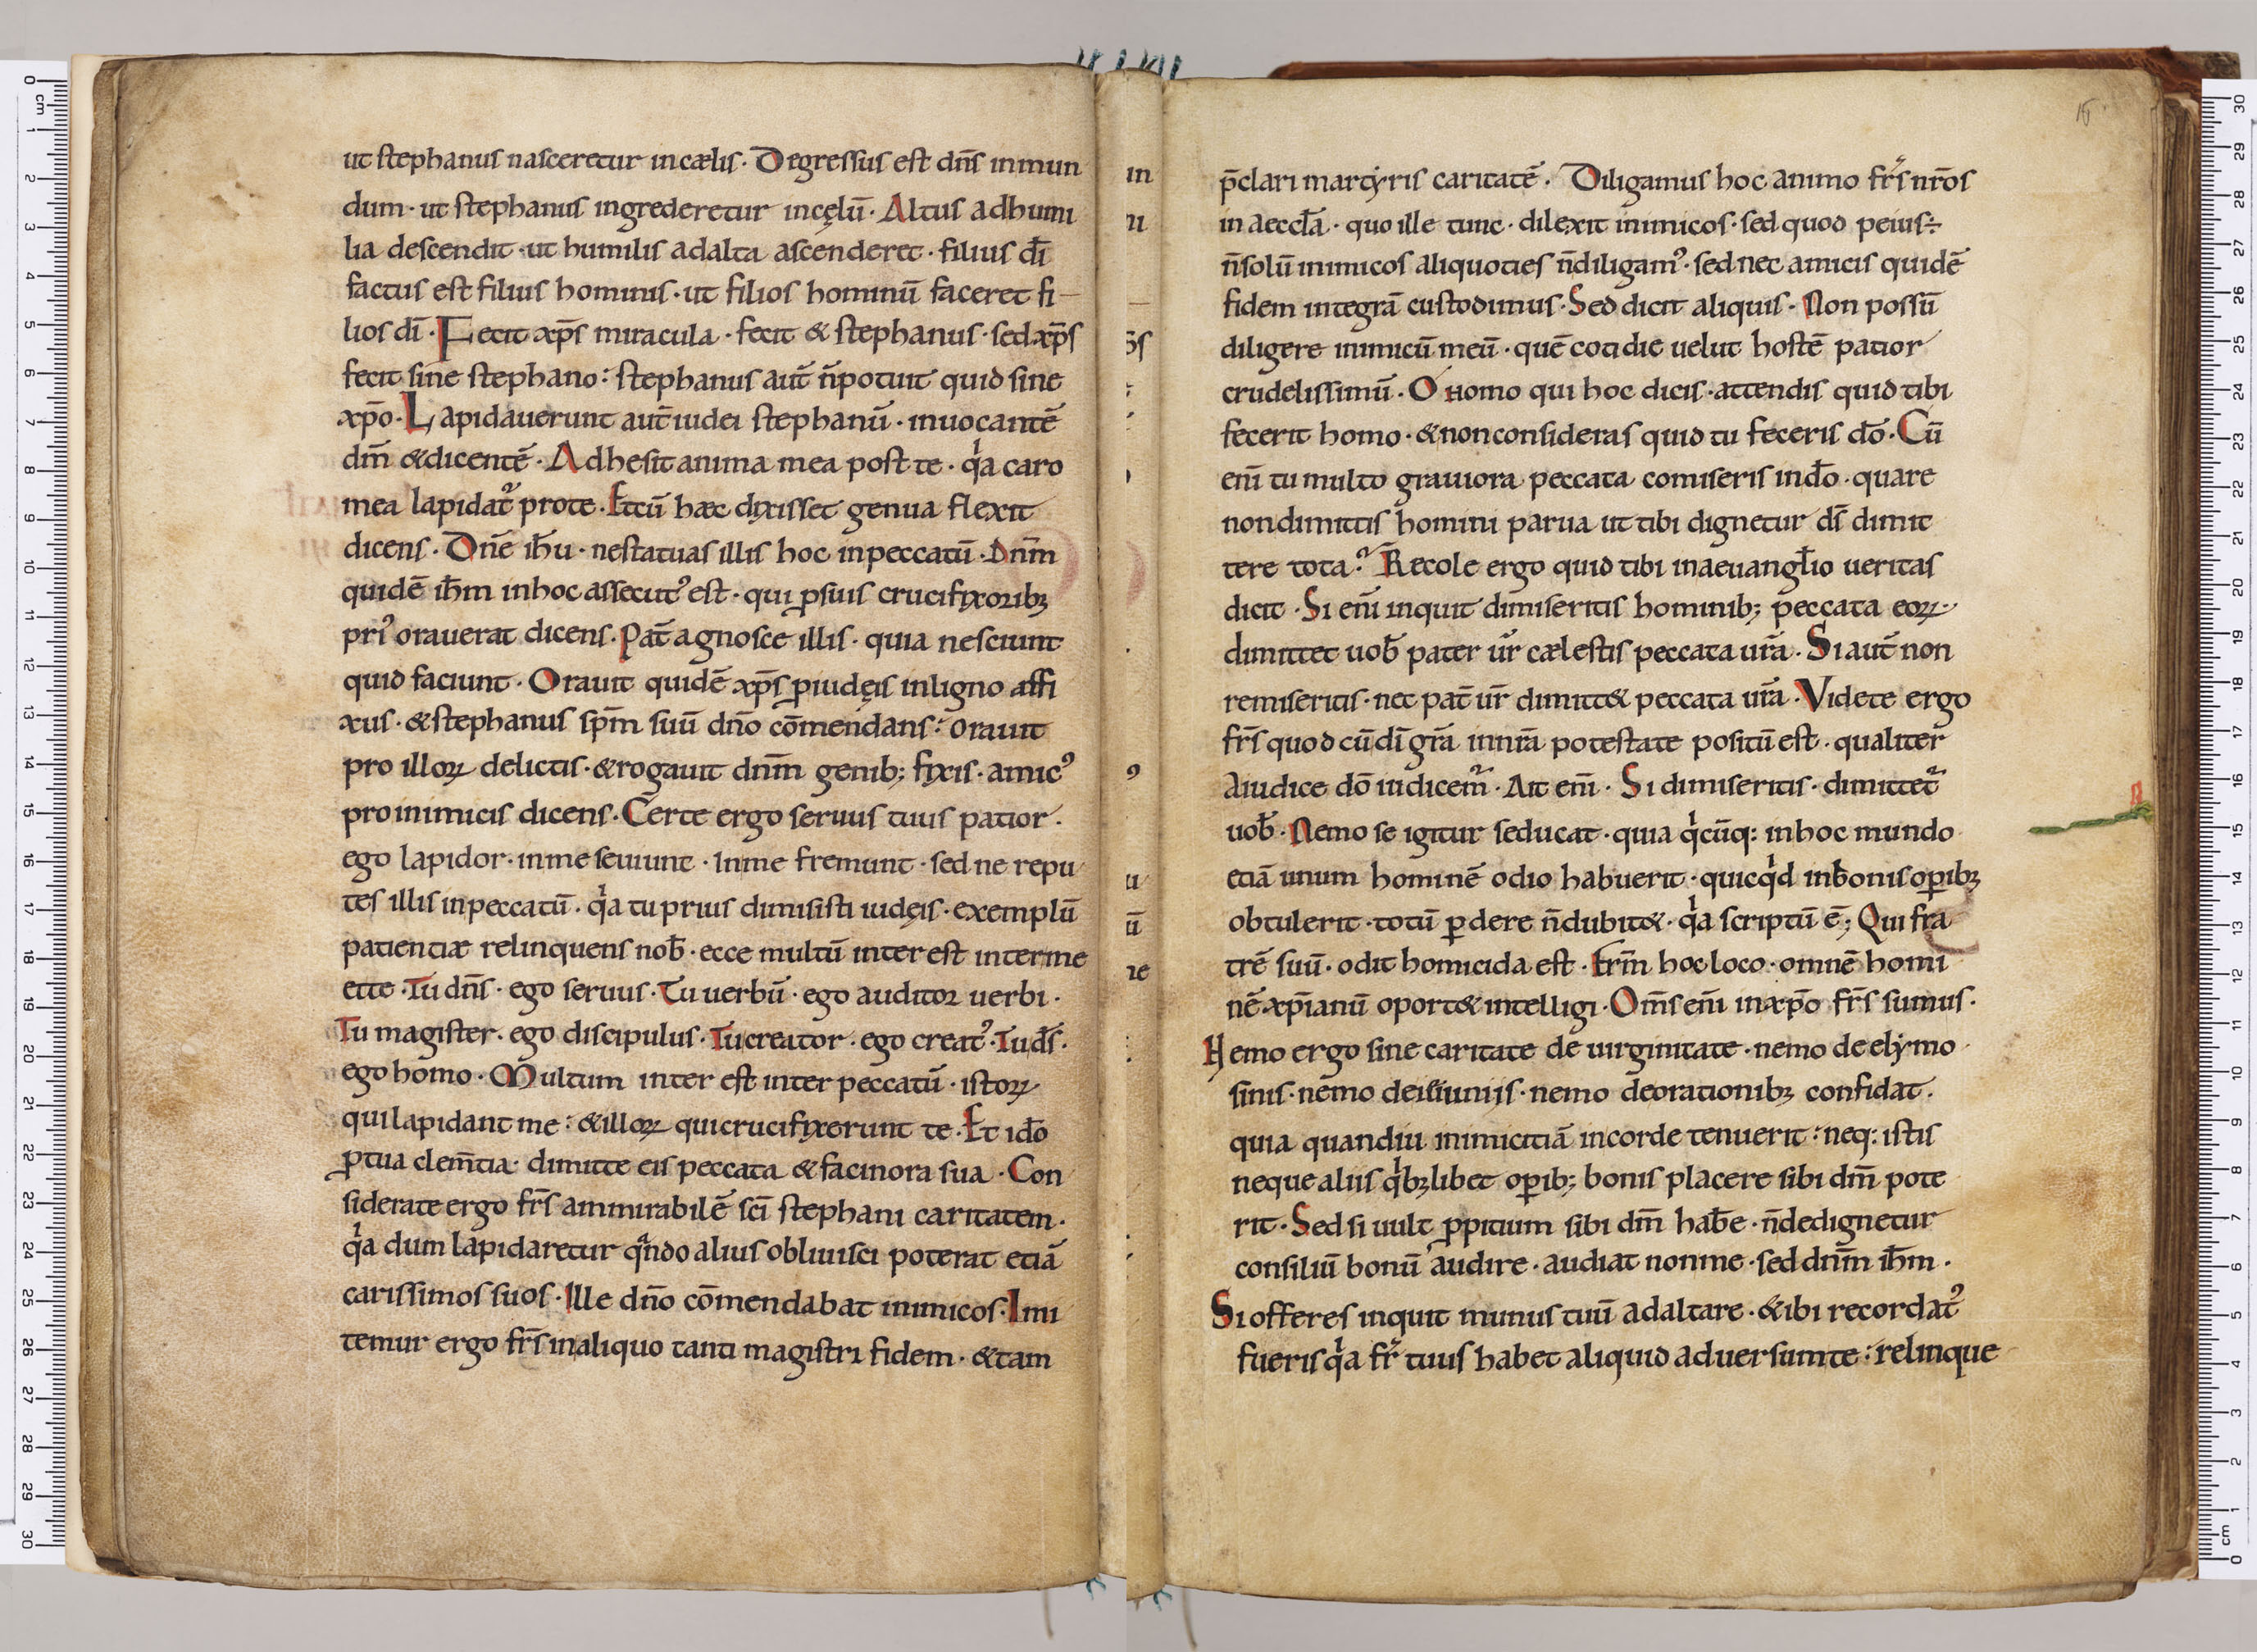 ut stephanus nasceretur in cælis · Degressus est dn̄s in mun
dum · ut stephanus ingrederetur in cęlū · Altus ad humi
lia descendit · ut humilis ad alta ascenderet · filius dī
factus est filius hominis · ut filios hominū faceret fi
lios dī · Fecit xp̄s miracula · fecit & stephanus · sed xp̄s
fecit sine stephano : stephanus aut̄ n̄ potuit quid sine
xp̄o · Lapidauerunt aut̄ iudei stephanū · inuocantē
dm̄ & dicentē · Adhesit anima mea post te · qͥa caro
mea lapidat᷑ pro te · Et cū hæc dixisset genua flexit
dicens · Dn̄e ih̄u · ne statuas illis hoc in peccatū · Dnm̄
quidē ih̄m in hoc assecutꝰ est · qui ꝓ suis crucifixoribꝫ
priꝰ orauerat dicens · Pat̄ agnosce illis · quia nesciunt
quid faciunt · Orauit quidē xp̄s ꝓ iudęis in ligno affi
xus · & stephanus sp̄m suū dn̄o cōmendans : orauit
pro illoꝝ delictis · & rogauit dnm̄ genib; fixis · amicꝰ
pro inimicis dicens · Certe ergo seruus tuus patior ·
ego lapidor · in me seuiunt · In me fremunt · sed ne repu
tes illis in peccatū · qͥa tu prius dimisisti iudęis · exemplū
patientiæ relinquens nob̄ · ecce multū inter est inter me
et te · Tu dn̄s · ego seruus · Tu uerbū · ego auditor uerbi ·
Tu magister · ego discipulus · Tu creator · ego creatꝰ · Tu ds̄ ·
ego homo · Multum inter est inter peccatū · istoꝝ
qui lapidant me : & illoꝝ qui crucifixerunt te · Et idō
ꝓ tua clem̄tia · dimitte eis peccata & facinora sua · Con
siderate ergo fr̄s ammirabilē sc̄i stephani caritatem ·
qͥa dum lapidaretur qᷓndo alius obliuisci poterat etiā
carissimos suos · Ille dn̄o cōmendabat inimicos · Imi
temur ergo fr̄s in aliquo tanti magistri fidem · & tam
p̄clari martẏris caritatē · Diligamus hoc animo fr̄s nr̄os
in aeccl̄a · quo ille tunc · dilexit inimicos · sed quod peius ÷
n̄ solū inimicos aliquoties n̄ diligamꝰ · sed nec amicis quidē
fidem integrā custodimus · Sed dicit aliquis · Non possū
diligere inimicū meū · quē cotidie uelut hostē patior
crudelissimū · O homo qui hoc dicis · attendis quid tibi
fecerit homo · & non consideras quid tu feceris dō · Cū
eni̅ tu multo grauiora peccata comiseris in dō · quare
non dimittis homini parua ut tibi dignetur ds̄ dimit
tere tota · Recole ergo quid tibi in aeuangl̄io ueritas
dicit · Si eni̅ inquit dimiseritis hominib; peccata eoꝝ ·
dimittet uob̄ pater ur̄ cælestis peccata ur̄a · Si aut̄ non
remiseritis · nec pat̄ ur̄ dimitt& peccata ur̄a · Videte ergo
fr̄s quod cū dī gr̄a in nr̄a potestate positū est · qualiter
a iudice dō iudicem᷑ · Ait eni̅ · Si dimiseritis · dimittet᷑
uob̄ · Nemo se igitur seducat · quia qͥcūq: in hoc mundo
etiā unum hominē odio habuerit · quicqͥd in bonis oꝑibꝫ
obtulerit · totū ꝑdere n̄ dubit& · qͥa scriptū ē ; Qui fra
trē suū · odit homicida est · Frm̄ hoc loco · omnē homi
nē xp̄ianū oport& intelligi · Om̄s eni̅ in xp̄o fr̄s sumus ·
Nemo ergo sine caritate de uirginitate · nemo de elẏmo
sinis · nemo de ieiunijs · nemo de orationibꝫ confidat ·
quia quandiu inimicitiā in corde tenuerit : neq: istis
neque aliis qͥbꝫlibet oꝑib; bonis placere sibi dm̄ pote
rit · Sed si uult ꝓpitium sibi dm̄ hab̄e · n̄ dedignetur
consiliū bonū audire · audiat non me · sed dnm̄ ih̄m ·
Si offeres inquit munus tuū ad altare · & ibi recordatꝰ
fueris qͥa fr̄ tuus habet aliquid aduersum te : relinque